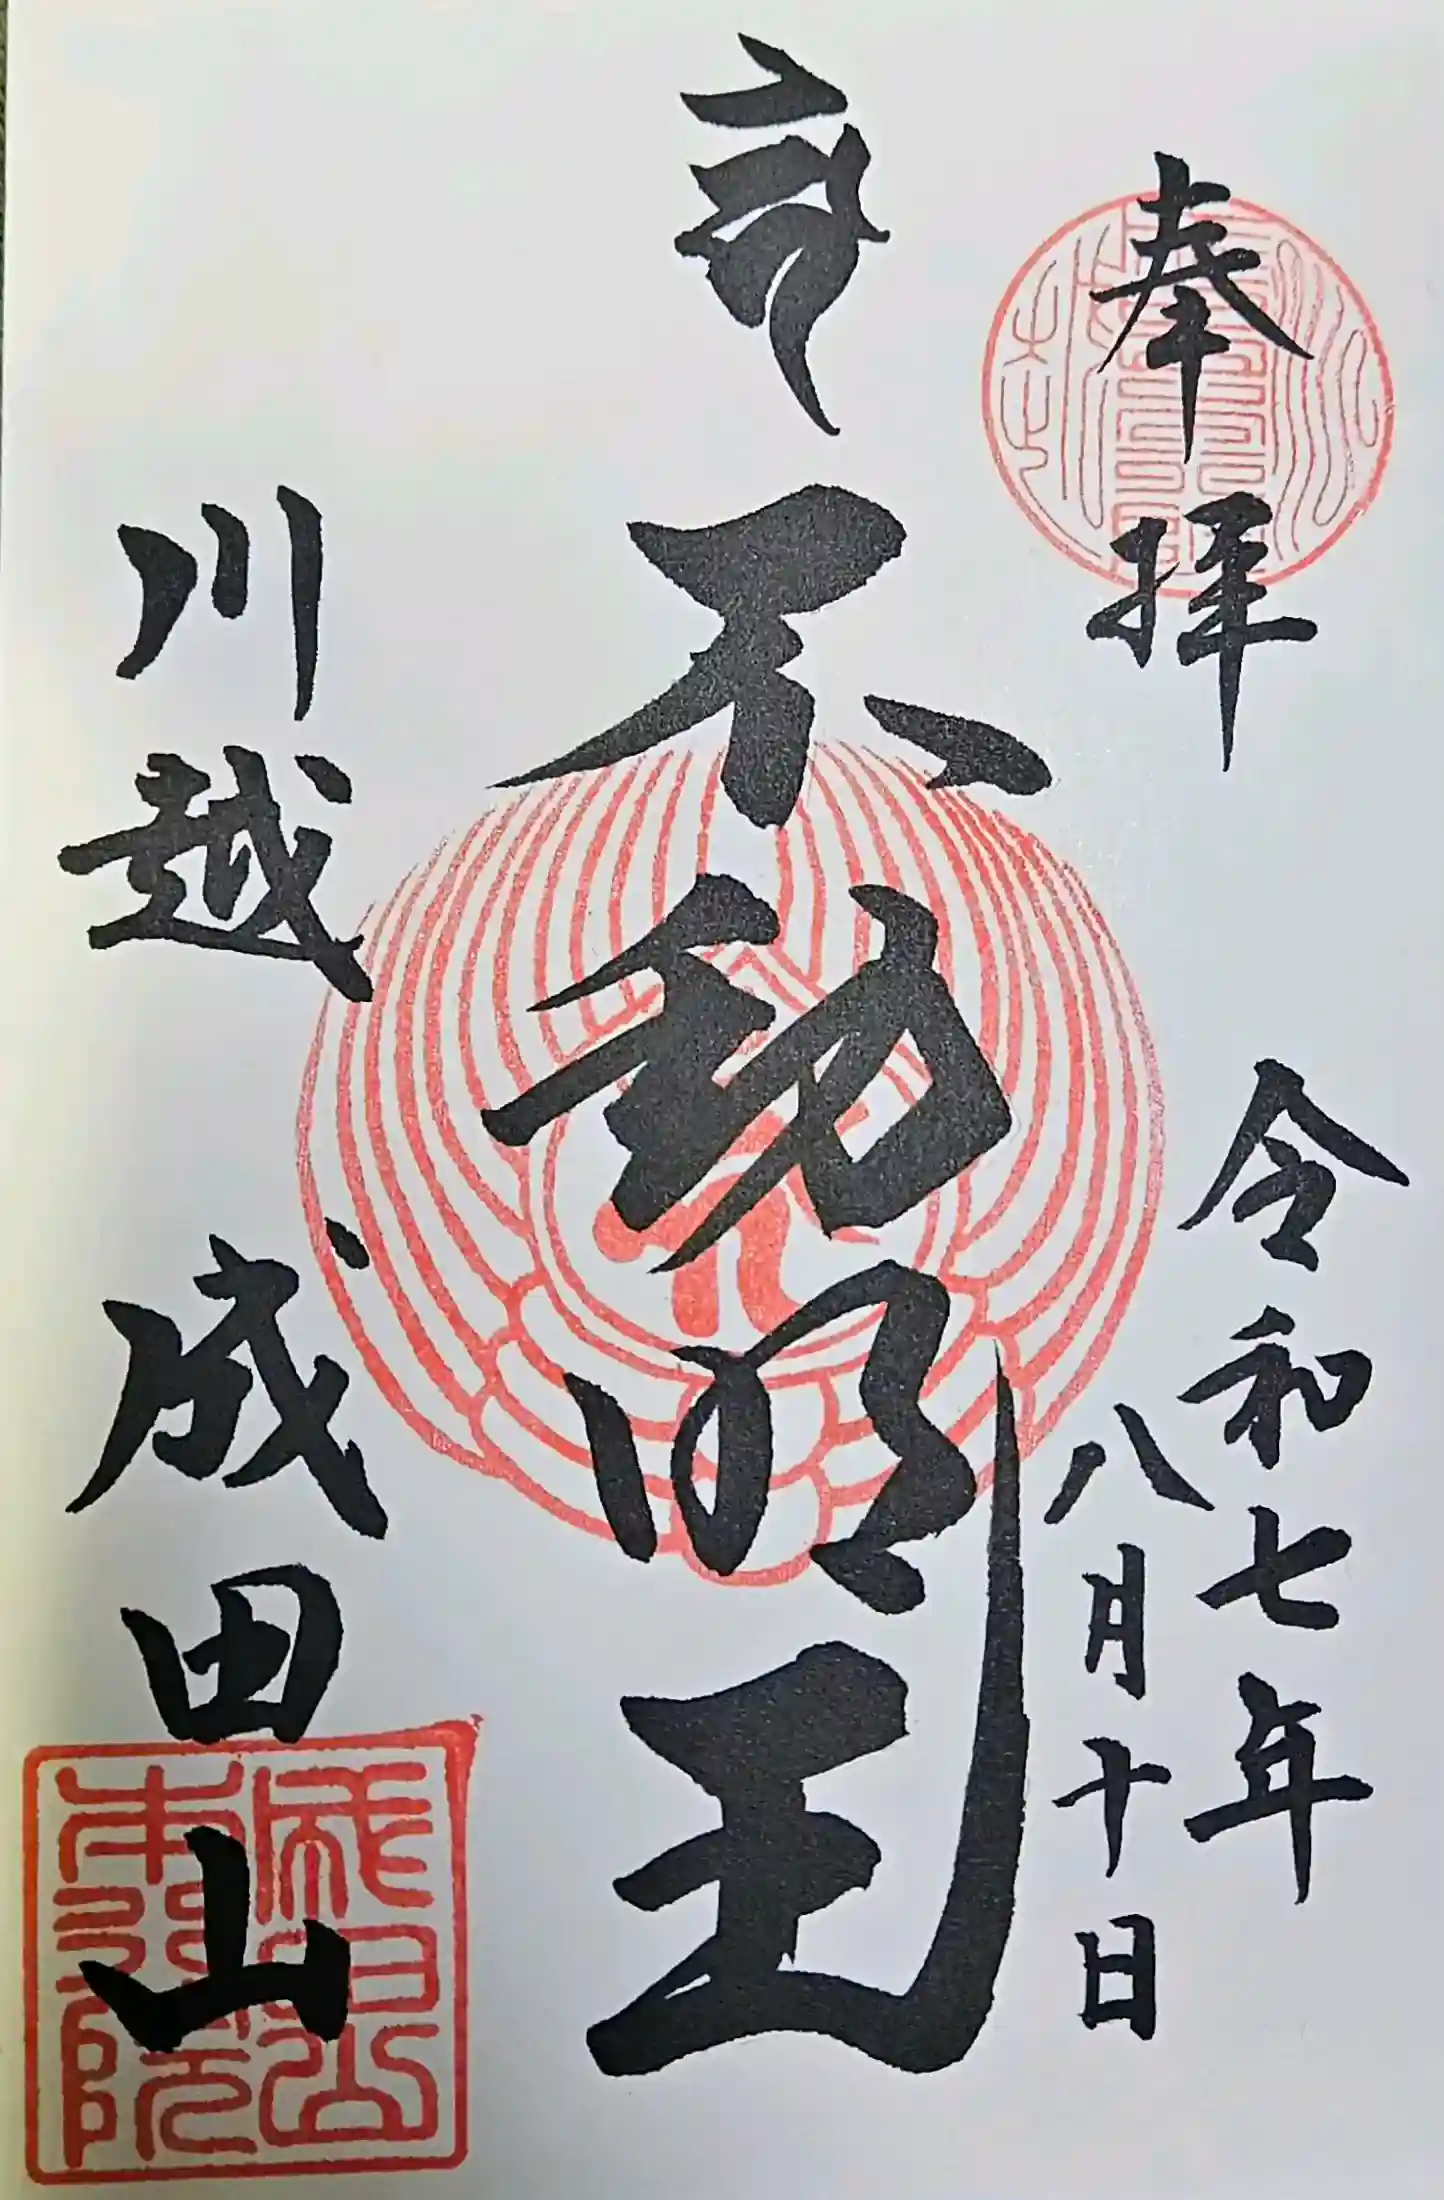 奉拝
令和七年
八月十日
不動明王
川越成田山
成田山
本行院